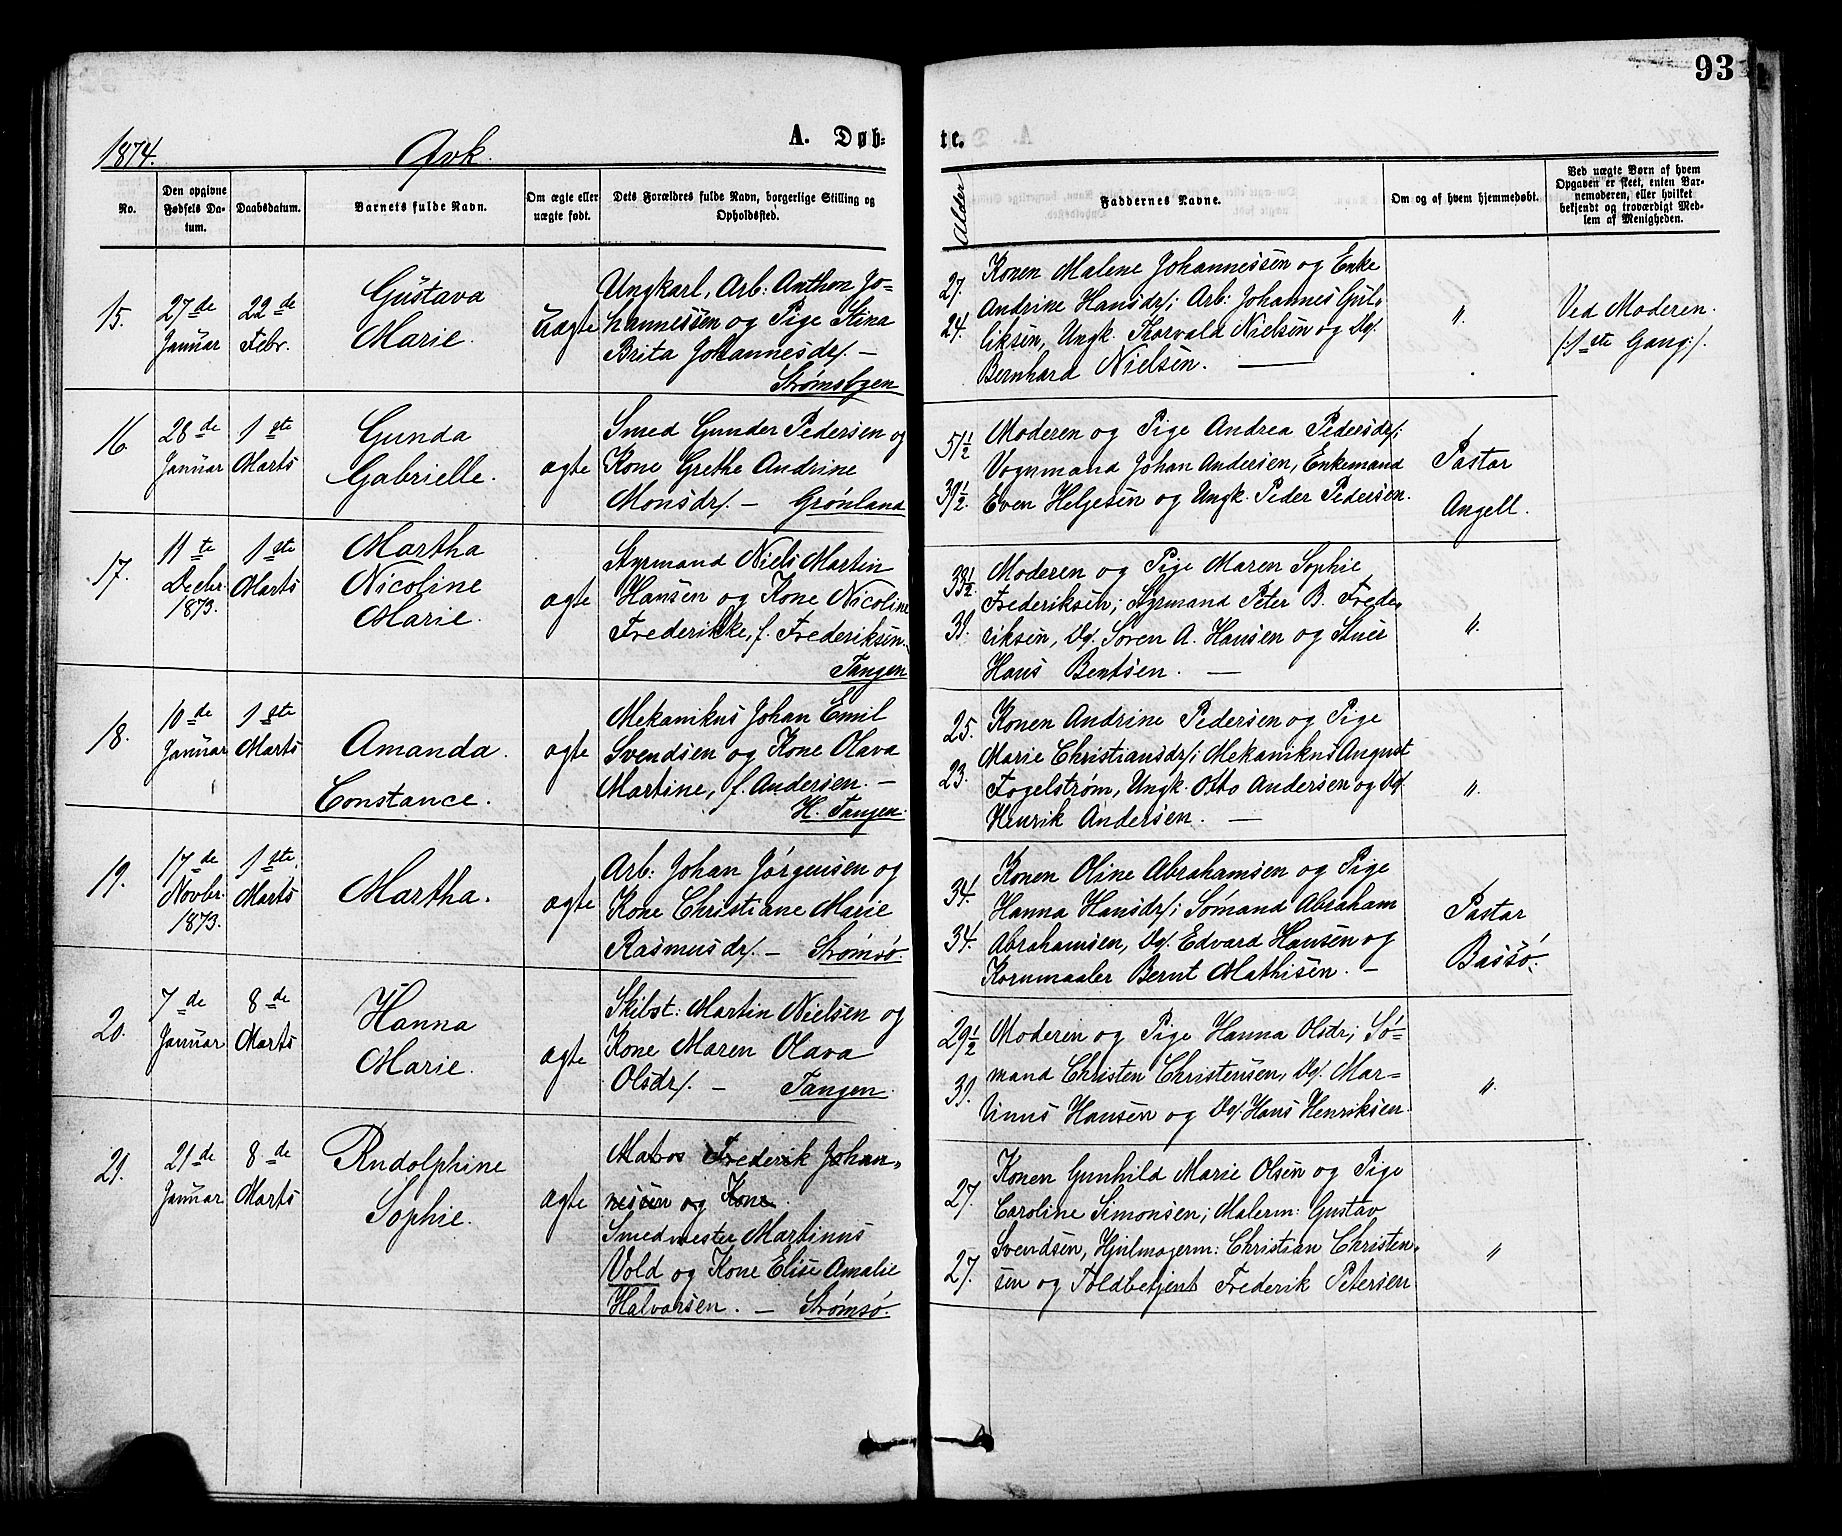 93
1874.
Qvk.
A. Døb-
te.
No.
Den opgivne Fødsels Da-tum.
Daabsdatum.
Barnets fulde Navn.
Om ægte eller uægte født.
Dets Forældres fulde Navn, borgerlige Stilling og Opholdssted.
Alder
Faddernes Navne.
Om og af hvem hjemmedøbt.
Ved uægte Børn af hvem Opgaven er skeet, enten Bar-nemoderen, eller hvilket bekjendt og troværdigt Med-lem af Menigheden.
15.
27de Januar
22de Febr.
Gustava
Marie.
uægte
Ungkarl, Arb: Anthon Jo-
hannessen og Pige Stina
Brita Johannesdr/. —
Strømsbyen
27.
24.
Konen Malene Johannessen og Enke
Andrine Hansdr/; Arb: Johannes Gul-
liksen, Ungk. Thorvald Nielsen og Do/.
Bernhard Nielsen. —
"
Ved Moderen.
(:1ste Gang:).
16.
28de Januar
1ste Marts
Gunda
Gabrielle.
ægte
Smed Gunder Pedersen og
Kone Grethe Andrine
Monsdr/. — Grønland
51½
39½
Moderen og Pige Andrea Pedersdr/;
Vognmand Johan Andersen, Enkemand
Even Helgesen og Ungk. Peder Pedersen.
Pastor
Angell.
17.
11te Decbr. 1873.
1ste Marts
Martha
Nicoline
Marie.
ægte
Styrmand Niels Martin
Hansen og Kone Nicoline
Frederikke, f. Frederiksen.
Tangen
33½.
39.
Moderen og Pige Maren Sophie
Frederiksen; Styrmand Peter B. Frede-
riksen, Do/. Søren A. Hansen og Stuer
Hans Bentsen. —
"
18.
10de Januar
1ste Marts
Amanda.
Constance.
ægte
Mekanikus Johan Emil
Svendsen og Kone Olava
Martine, f. Andersen. —
H. Tangen.
25.
23.
Konen Andrine Pedersen og Pige
Marie Christiansdr/; Mekanikus August
Fogelstrøm, Ungk. Otto Andersen og Do/.
Henrik Andersen. —
"
19.
17de Novbr. 1873.
1ste Marts
Martha.
ægte
Arb: Johan Jørgensen og
Kone Christiane Marie
Rasmusdr/. — Strømsø.
34.
34.
Konen Oline Abrahamsen og Pige
Hanna Hansdr/; Sømand Abraham
Abrahamsen, Do/. Edvard Hansen og
Kornmaaler Bernt Mathisen. —
Pastor
Bassø.
20.
7de Januar
8de Marts
Hanna
Marie.
ægte
Skibst: Martin Nielsen og
Kone Maren Olava
Olsdr/. — Tangen.
29½
39.
Moderen og Pige Hanna Olsdr; Sø-
mand Christen Christensen, Do/. Mar-
tinus Hansen og Do/. Hans Henriksen.
"
21.
21de Januar
8de Marts
Rudolphine
Sophie.
ægte
Matros Frederik Johan-
nessen og Kone
Smedmester Martinus
Vold og Kone Elise Amalie
Halvorsen. — Strømsø.
27.
27.
Konen Gunhild Marie Olsen og Pige
Caroline Simonsen; Malerm: Gustav
Svendsen, Hjulmagerm: Christian Christen-
sen og Toldbetjent Frederik Petersen
"